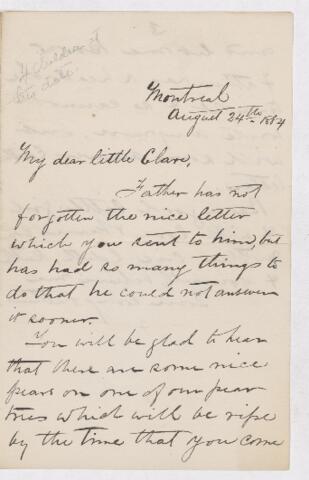 Montreal
August 24th 1884
My dear little Clare,
Father has not
forgotten the nice letter
which you sent to him, but
has had so many things to
do that he could not answer
it sooner.
You will be glad to hear
that there are some nice
pears on one of our pear
trees which will be ripe
by the time that you come